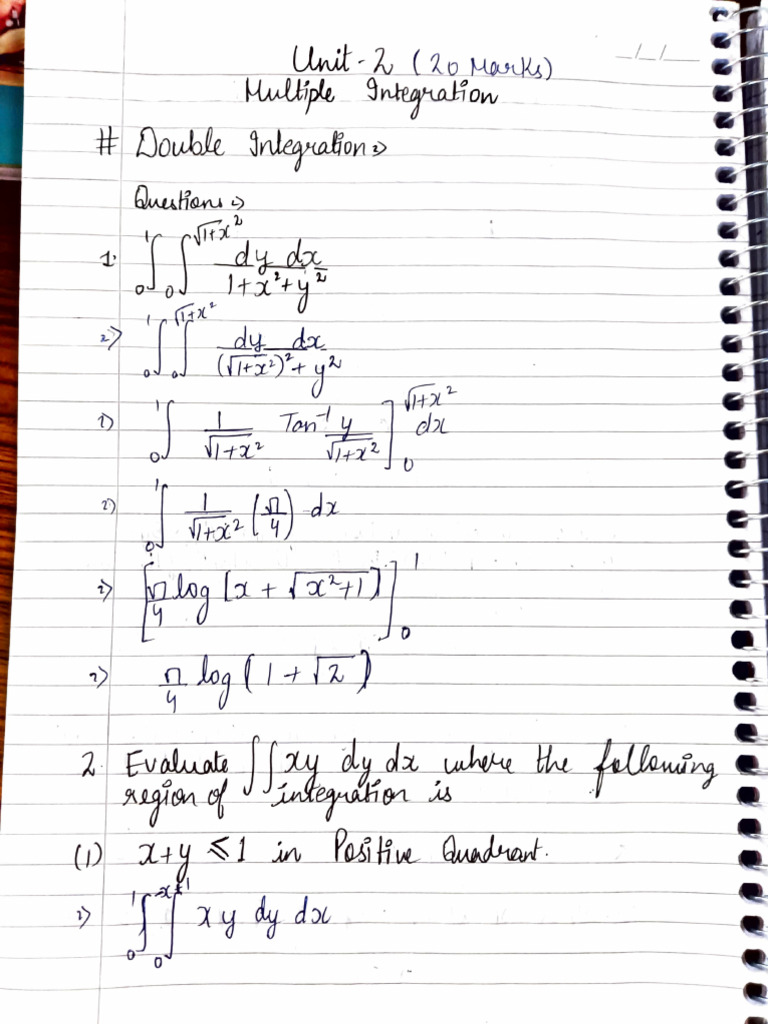 Unit-2 (20 Marks)
__/__/____
Multiple Integration
# Double Integration →
Questions →
1. ∫₀¹ ∫₀^√(1+x²) dy dx / (1+x²+y²)
⇒ ∫₀¹ ∫₀^√(1+x²) dy dx / ((√(1+x²))² + y²)
⇒ ∫₀¹ 1/√(1+x²) Tan⁻¹ y/√(1+x²) ]₀^√(1+x²) dx
⇒ ∫₀¹ 1/√(1+x²) (π/4) dx
⇒ [π/4 log [x + √(x²+1)]]₀¹
⇒ π/4 log (1+√2)
2. Evaluate ∫∫ xy dy dx where the following
region of integration is
(1) x+y ≤ 1 in Positive Quadrant.
⇒ ∫₀¹ ∫₀^(-x+1) xy dy dx